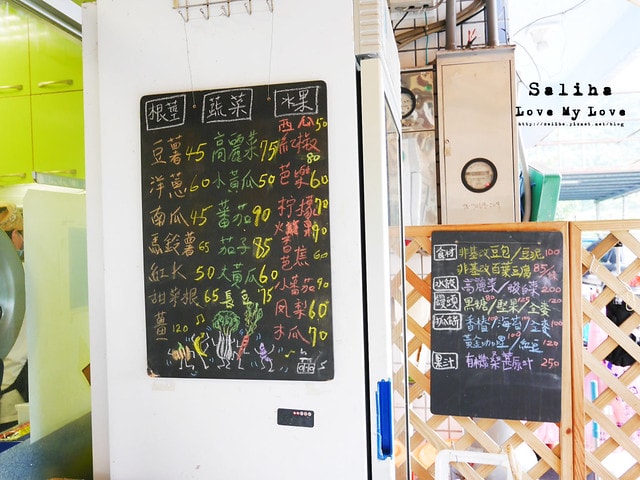 Saliha
Love My Love
http://saliha.pixnet.net/blog
根莖 蔬菜 水果
豆薯 45 高麗菜 75 西瓜 50
洋蔥 60 小黃瓜 50 80
南瓜 45 番茄 90 芭樂 60
馬鈴薯 65 茄子 85 檸檬 70
紅K 50 大黃瓜 60 火龍果 90
甜菜根 65 長豆 75 香蕉 60
薑 120 小番茄 90
鳳梨 60
木瓜 70
食材 非基改豆包/豆泥 100
非基改百葉豆腐 85
水餃 高麗菜/酸白菜 200
饅頭 黑糖 80/堅果 125/全麥
抓餅 香椿/海苔/全麥
黃金咖哩 100/紅豆 120
果汁 有機桑葚原汁 250